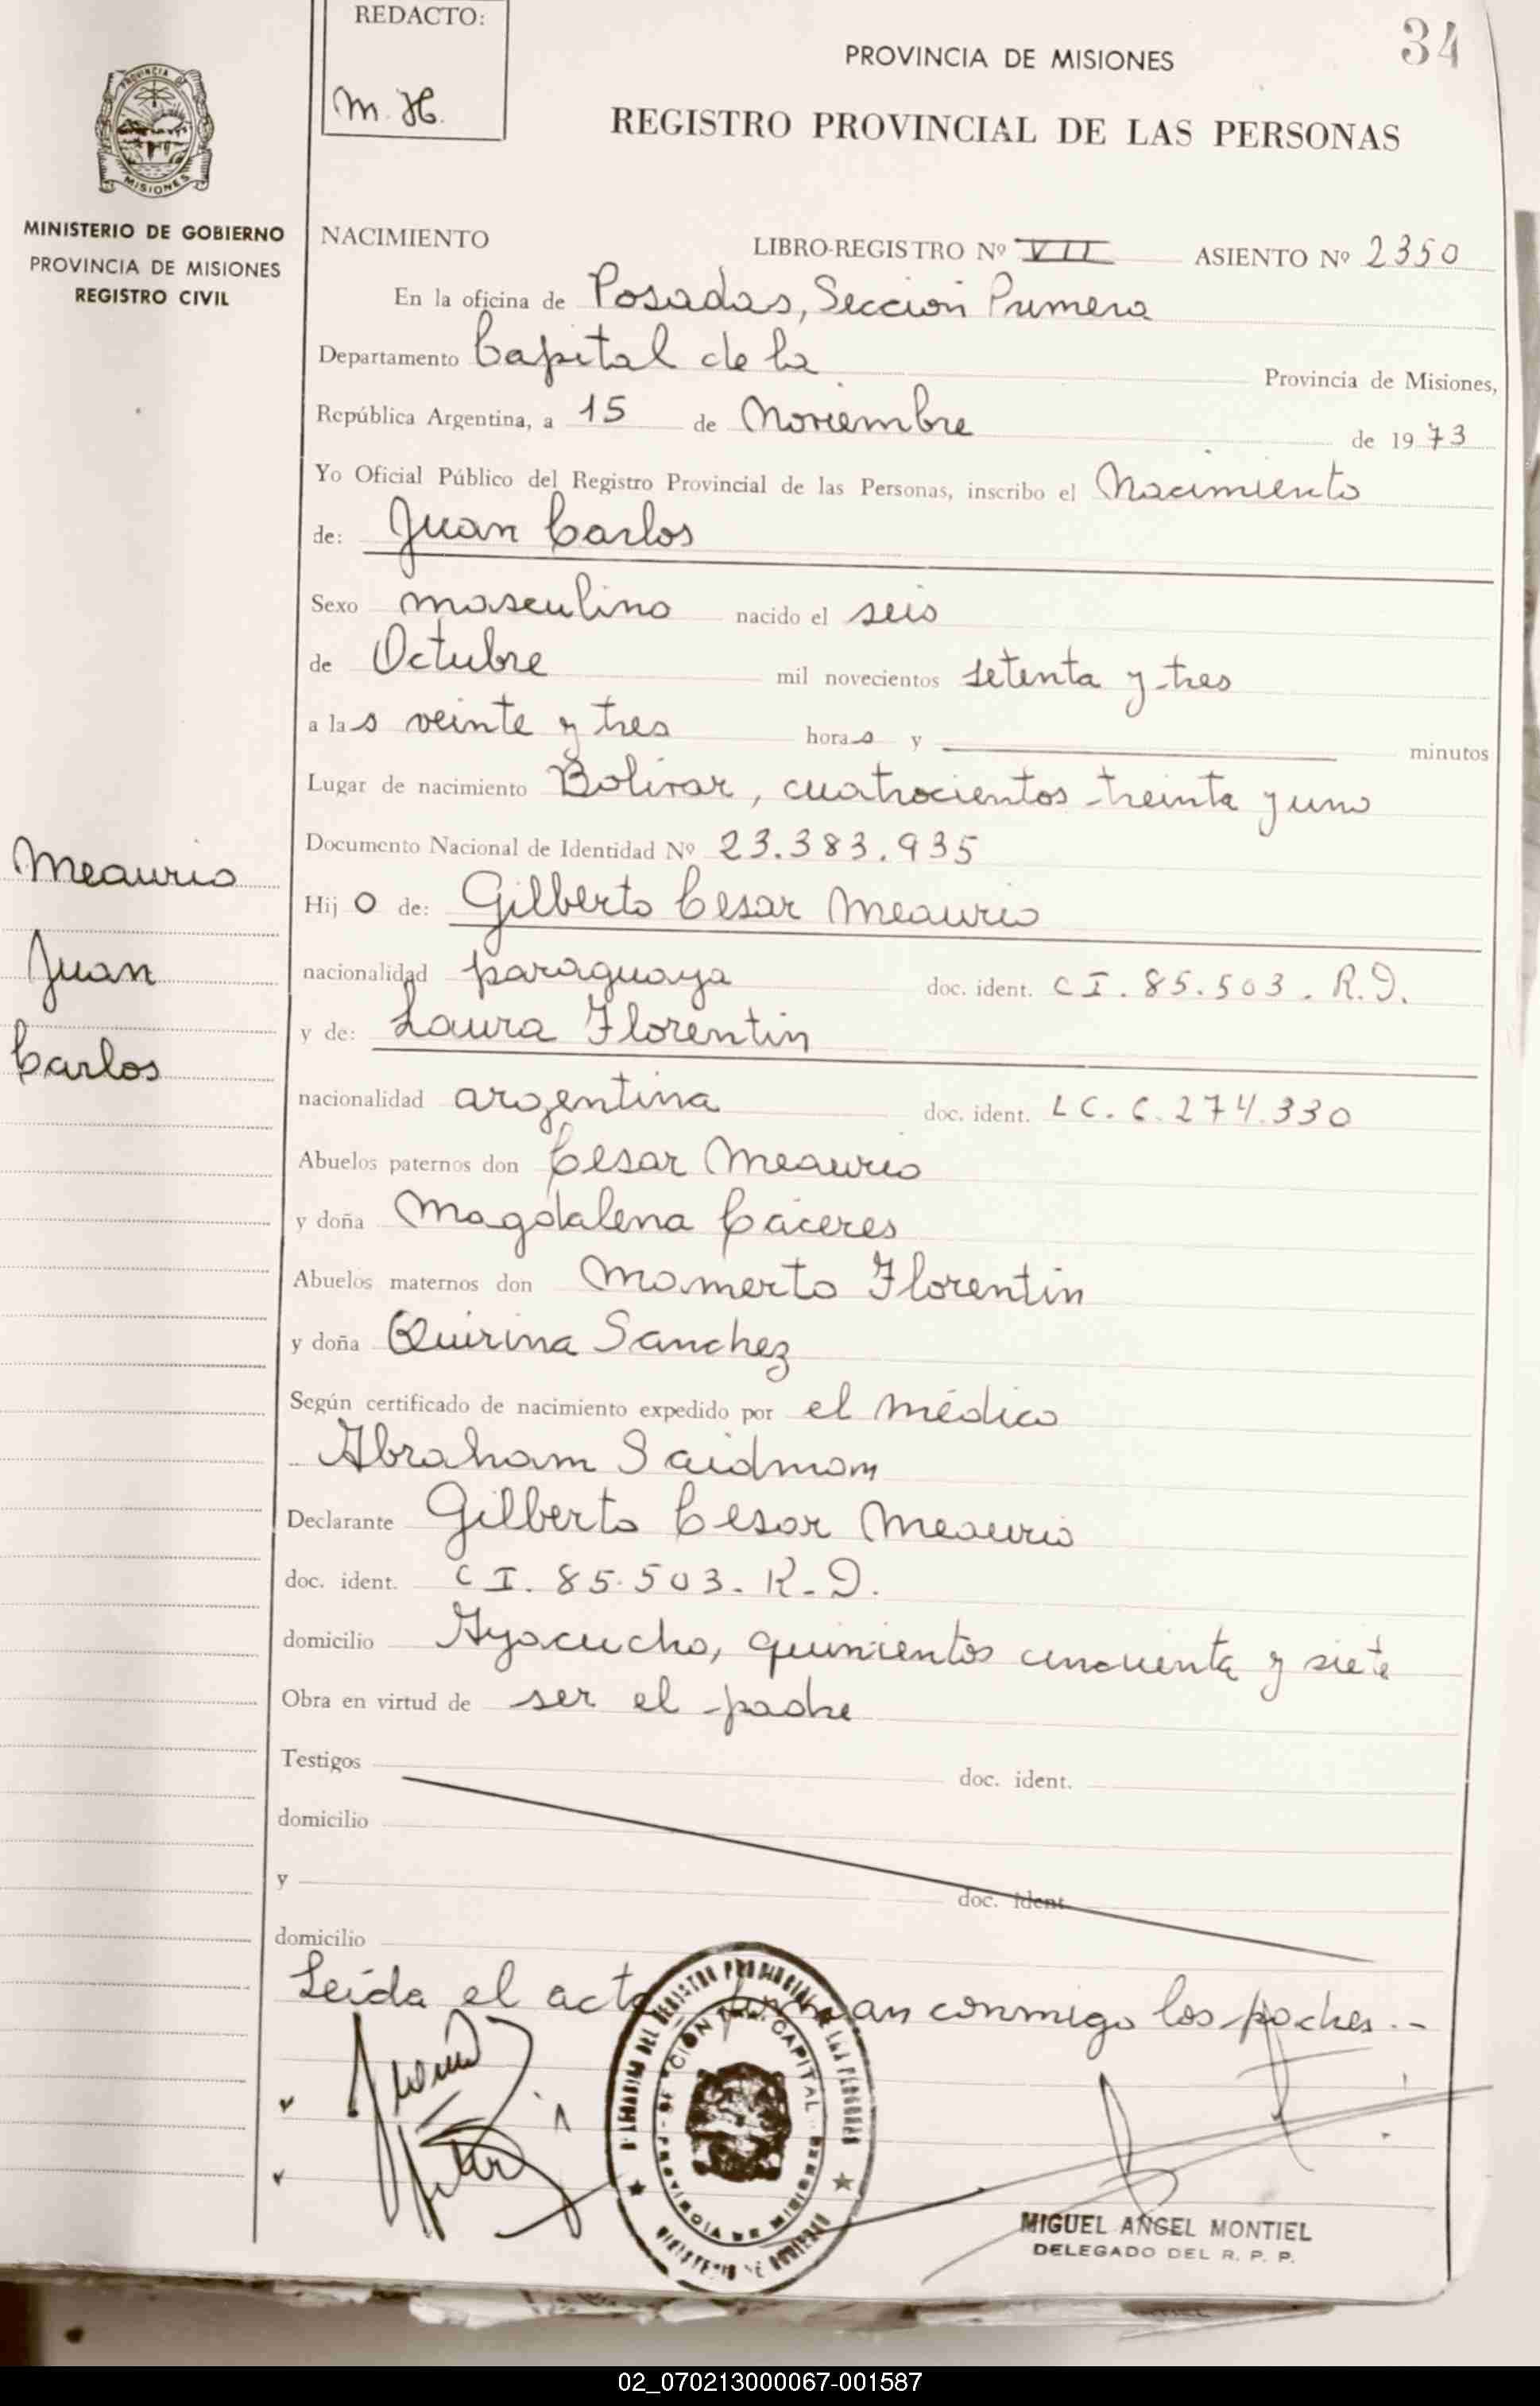 REDACTO:
M. H.
PROVINCIA DE MISIONES
34
REGISTRO PROVINCIAL DE LAS PERSONAS
PROVINCIA DE
MISIONES
MINISTERIO DE GOBIERNO
PROVINCIA DE MISIONES
REGISTRO CIVIL
NACIMIENTO LIBRO-REGISTRO Nº VII ASIENTO Nº 2350
En la oficina de Posadas, Sección Primera
Departamento Capital de la Provincia de Misiones,
República Argentina, a 15 de Noviembre de 1973
Yo Oficial Público del Registro Provincial de las Personas, inscribo el Nacimiento
de: Juan Carlos
Sexo masculino nacido el seis
de Octubre mil novecientos setenta y tres
a las veinte y tres horas y minutos
Lugar de nacimiento Bolívar, cuatrocientos treinta y uno
Documento Nacional de Identidad Nº 23.383.935
Meaurio
Juan
Carlos
Hijo de: Gilberto Cesar Meaurio
nacionalidad paraguaya doc. ident. C I. 85.503. R.D.
y de: Laura Florentin
nacionalidad argentina doc. ident. L C. 6.274.330
Abuelos paternos don Cesar Meaurio
y doña Magdalena Cáceres
Abuelos maternos don Mamerto Florentin
y doña Quirina Sanchez
Según certificado de nacimiento expedido por el médico
Abraham Saidman
Declarante Gilberto Cesar Meaurio
doc. ident. C I. 85.503. R.D.
domicilio Ayacucho, quinientos cincuenta y siete
Obra en virtud de ser el padre
Testigos doc. ident.
domicilio
y doc. ident.
domicilio
Leída el acta firman conmigo los padres.-
MIGUEL ANGEL MONTIEL
DELEGADO DEL R. P. P.
02_070213000067-001587